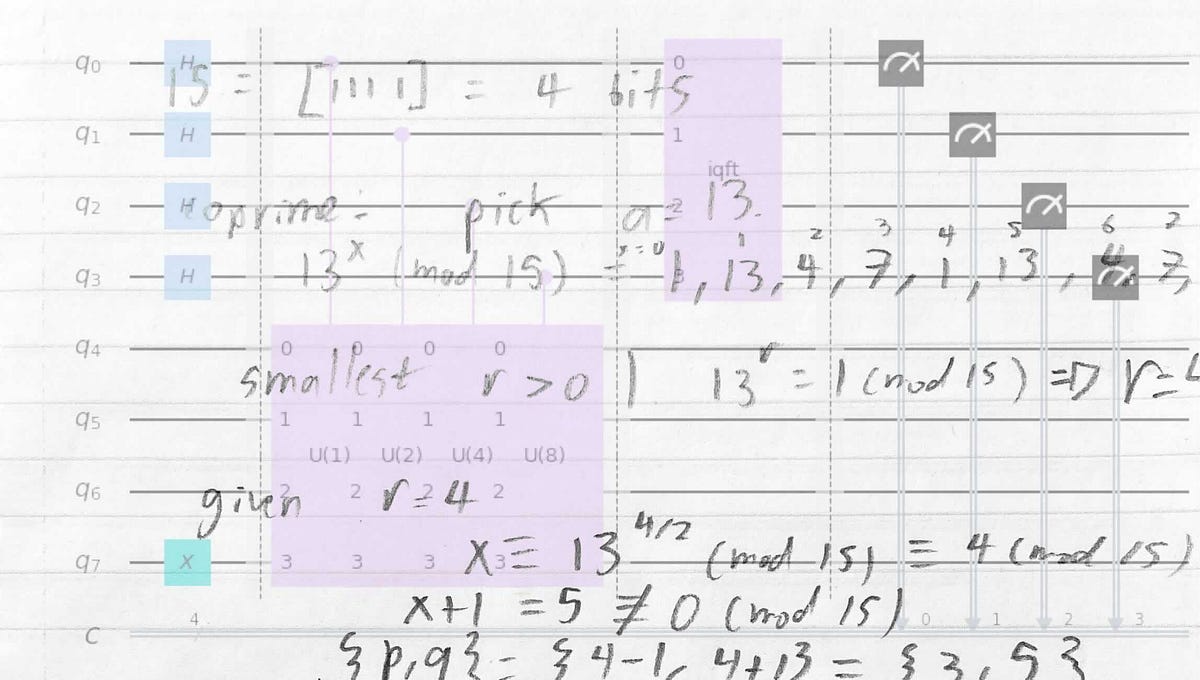 q0 H 0
15 = [1111] = 4 bits
q1 H 1
iqft
q2 H coprime: pick a = 13. 2
x=0 1 2 3 4 5 6 2
q3 H 13^x (mod 15) = 1, 13, 4, 7, 1, 13, 4, 7, 3
q4 0 0 0 0
smallest r > 0 | 13^r = 1 (mod 15) => r=4
q5 1 1 1 1
U(1) U(2) U(4) U(8)
q6 2 2 2 2
given r=4
x ≡ 13^4/2 (mod 15) ≡ 4 (mod 15)
q7 X 3 3 3 3
x+1 = 5 ≠ 0 (mod 15)
c 4 0 1 2 3
{p,q} = {4-1, 4+1} = {3, 5}